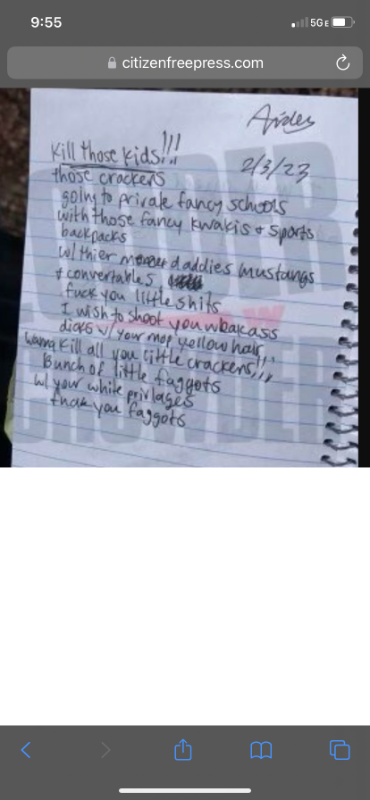 9:55
5GE
citizenfreepress.com
Aiden
Kill those kids!!!
2/3/23
those crackers
going to private fancy schools
with those fancy kwakis & sports
backpacks
w/ thier daddies mustangs
& convertables
fuck you little shits
I wish to shoot you ass
dicks w/ your mop yellow hair
wanna kill all you little crackers!!!
Bunch of little faggots
w/ your white privlages
fuck you faggots
CROWDER